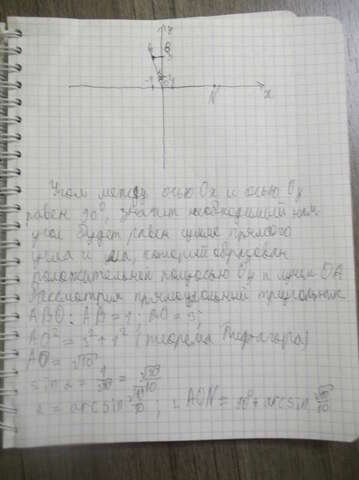 y
A B
3
-1 0 1
N x
Угол между осью Ox и осью Oy
равен 90°, значит необходимый нам
угол будет равен сумме прямого
угла и угла, который образован
положительной полуосью Oy и лучом OA.
Рассмотрим прямоугольный треугольник
ABO: AB = 1; BO = 3;
AO² = 3² + 1² (теорема Пифагора)
AO = √10
sin α = 1/√10 = √10/10
α = arcsin √10/10; ∠AON = 90° + arcsin √10/10